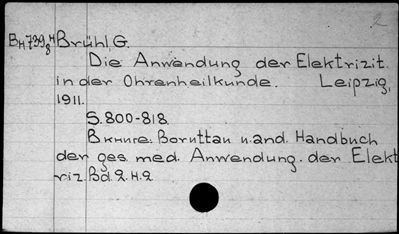 2
Вн739н/8 Brühl G.
Die Anwendung der Elektrizit.
in der Ohrenheilkunde. Leipzig,
1911.
S. 800-818
В книге. Boruttau u. and. Handbuch
der ges. med. Anwendung. der Elekt
riz. Bd. 2. H. 2